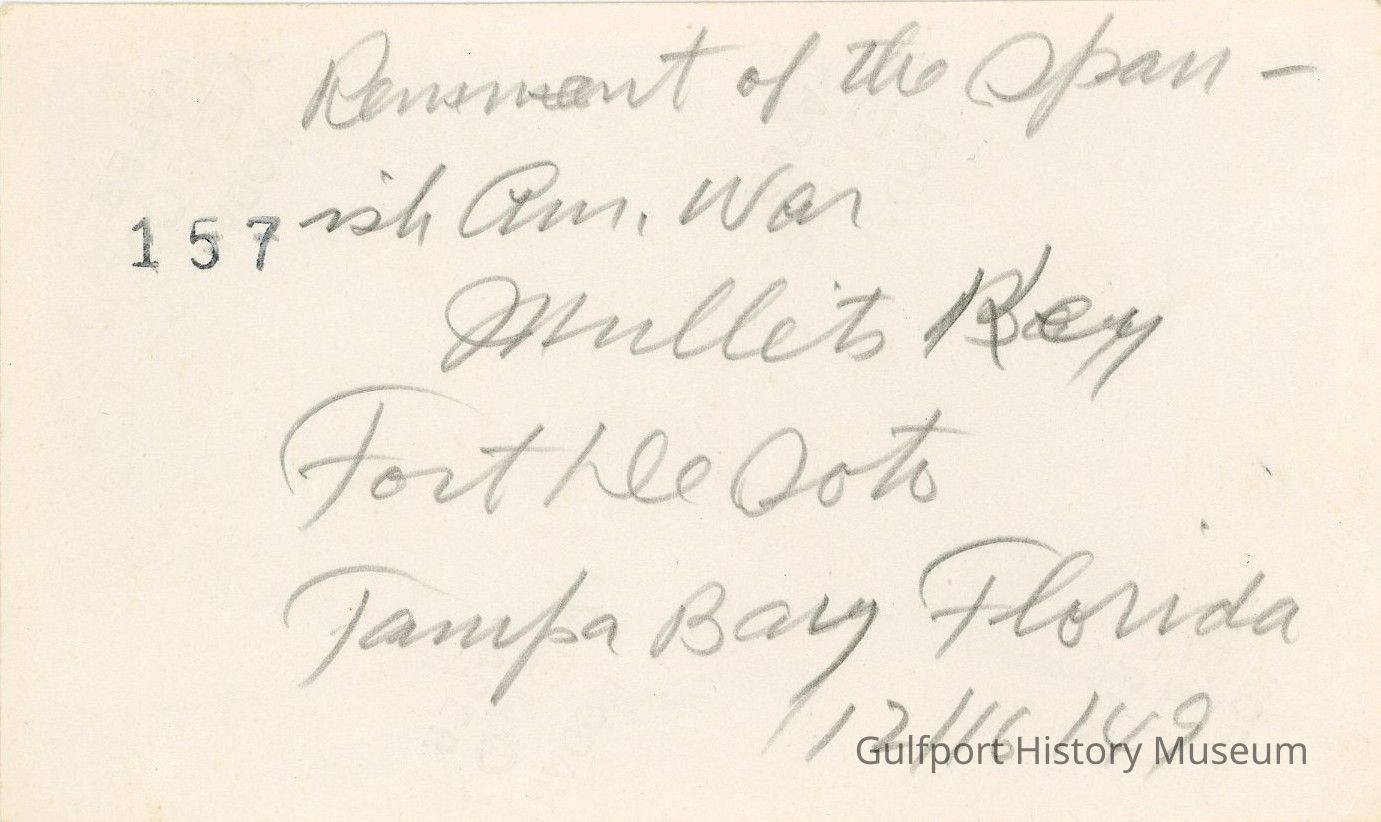 Remnant of the Span-
157 ish Am. War
Mullets Key
Fort De Soto
Tampa Bay Florida
12/16/49
Gulfport History Museum